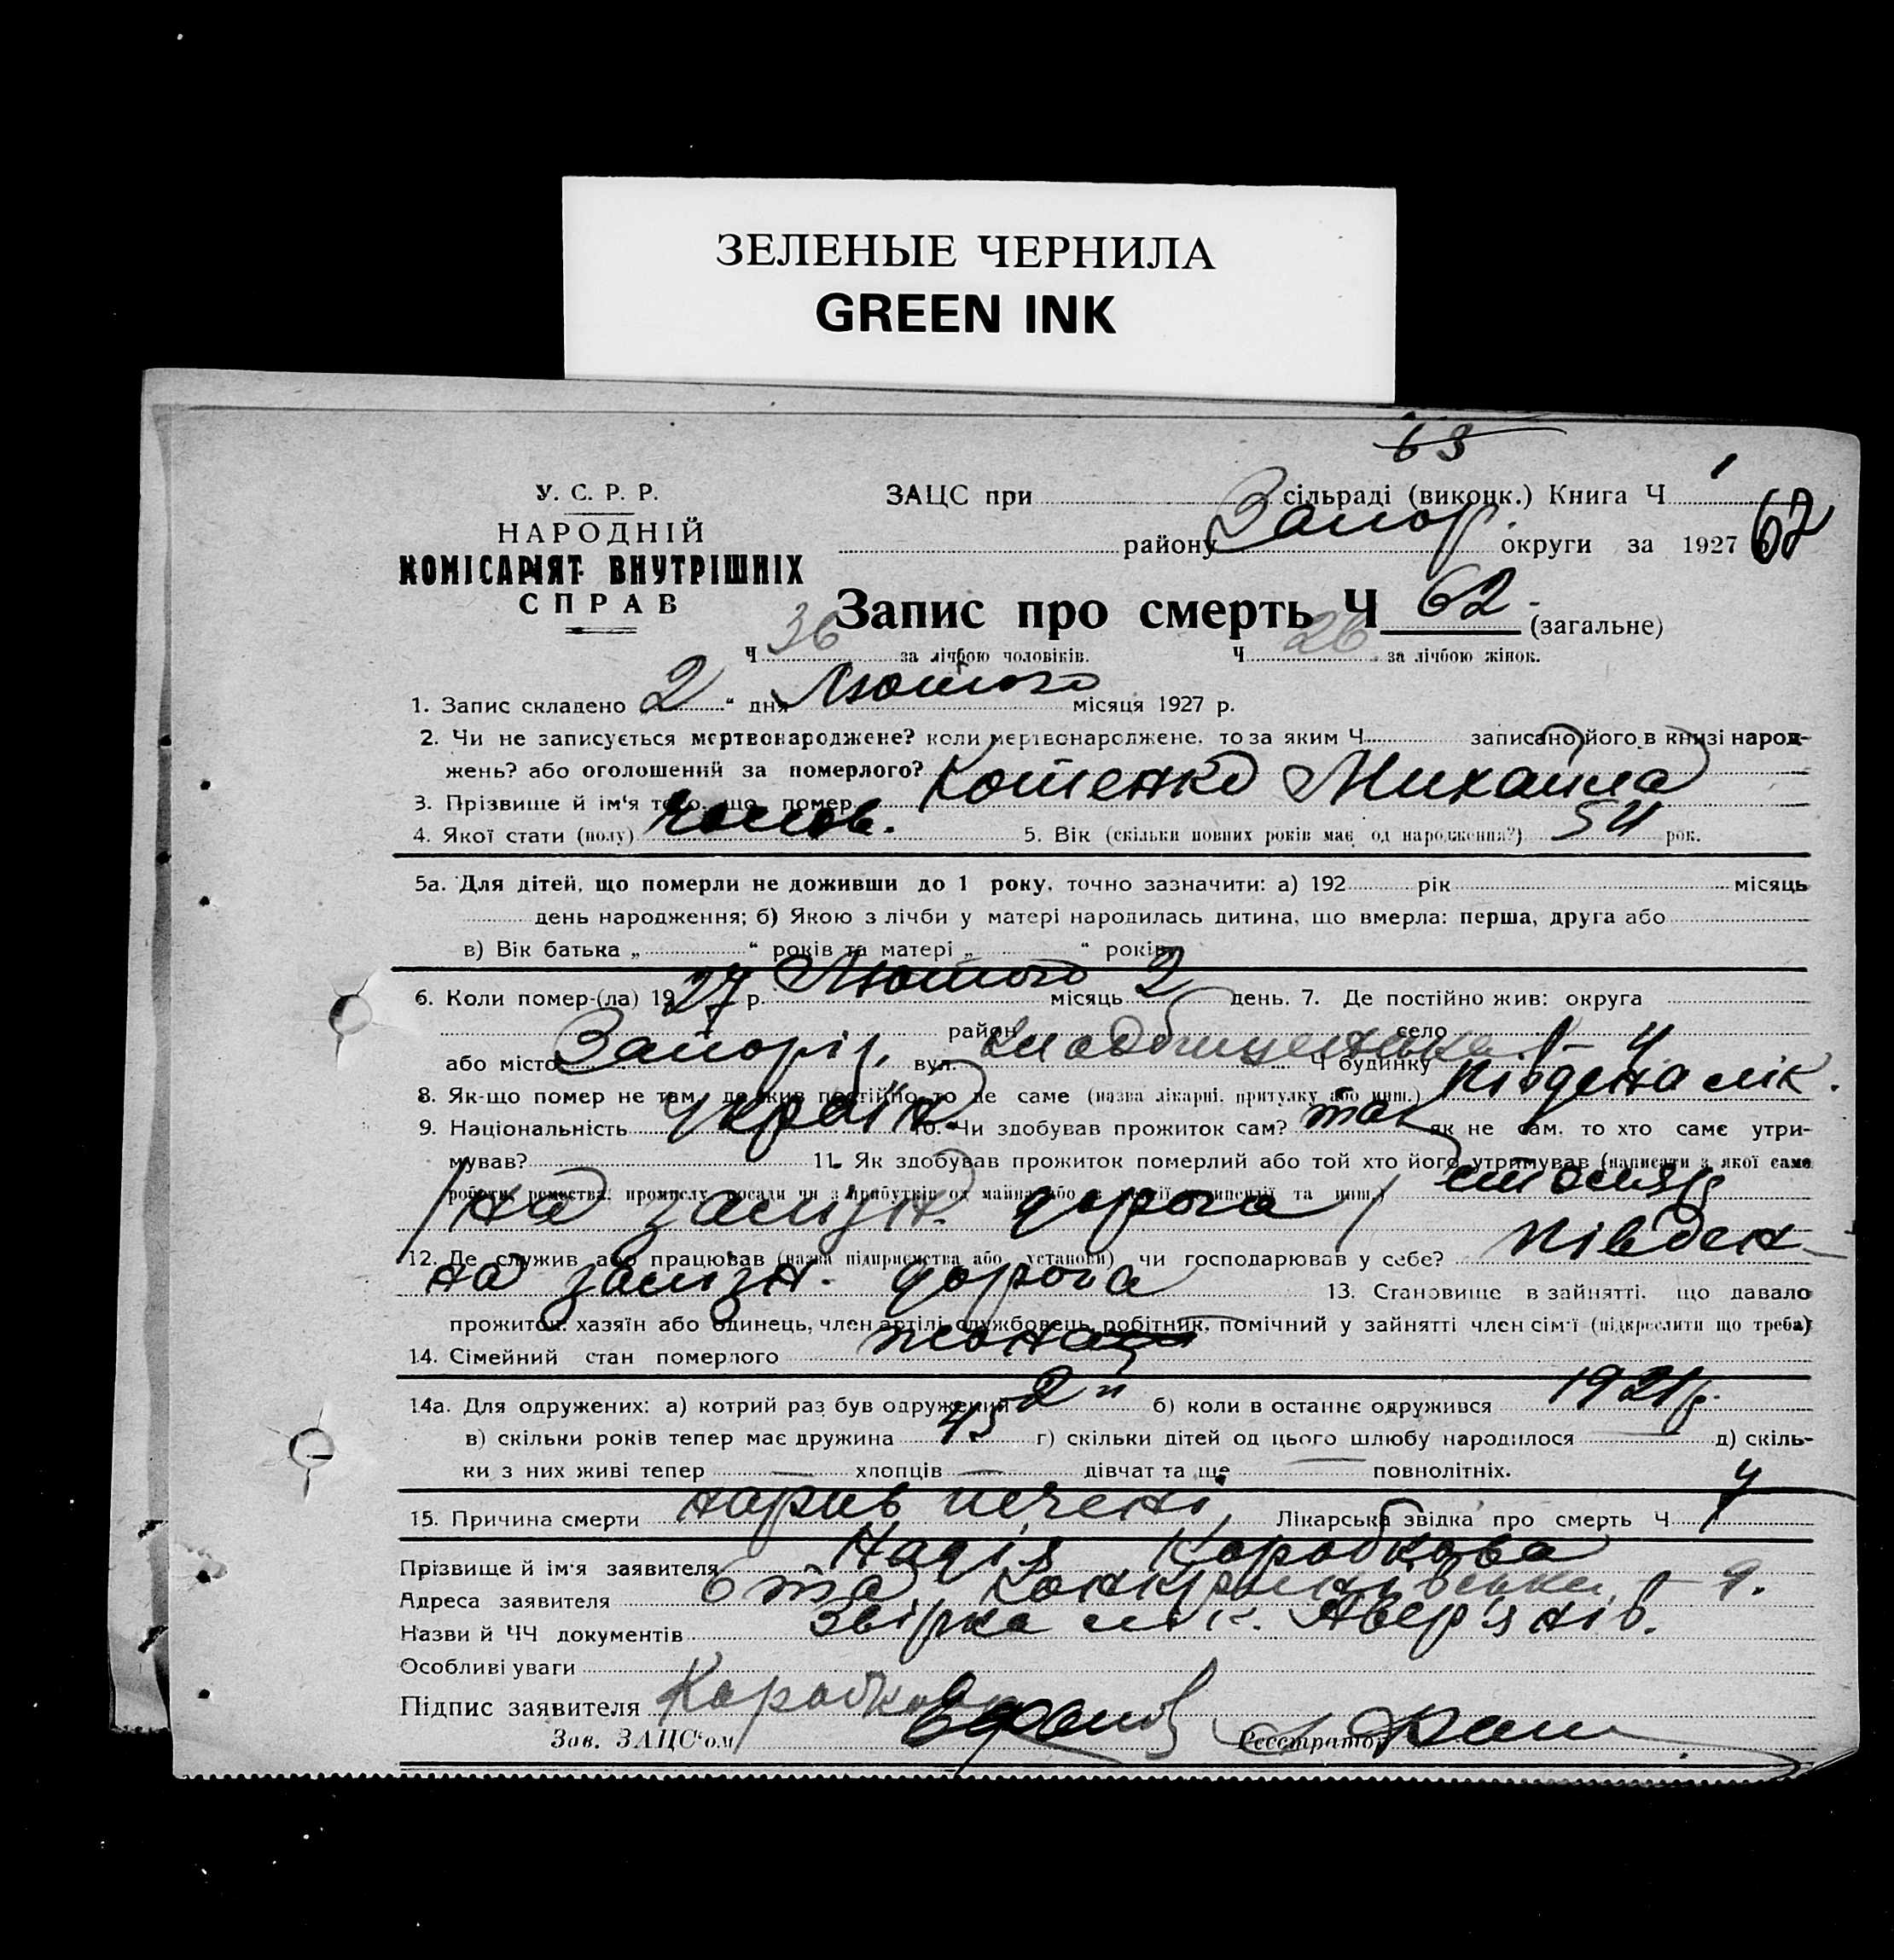 ЗЕЛЕНЫЕ ЧЕРНИЛА
GREEN INK
63
У. С. Р. Р.
НАРОДНІЙ
КОМІСАРІЯТ ВНУТРІШНІХ
СПРАВ
ЗАЦС при сільраді (виконк.) Книга Ч 1
району Запор. округи за 1927 62
Запис про смерть Ч 62 (загальне)
Ч 36 за лічбою чоловіків. Ч 26 за лічбою жінок.
1. Запис складено 2 “ дня Лютого місяця 1927 р.
2. Чи не записується мертвонароджене? коли мертвонароджене, то за яким Ч записано його в книзі народ-
жень? або оголошений за померлого?
3. Прізвище й ім‘я того, що помер Котенко Михайла
4. Якої стати (полу) Чолов. 5. Вік (скільки повних років має од народження?) 54 рок.
5а. Для дітей, що померли не доживши до 1 року, точно зазначити: а) 192 рік місяць
день народження; б) Якою з лічби у матері народилась дитина, що вмерла: перша, друга або
в) Вік батька „ “ років та матері „ “ років
6. Коли помер-(ла) 1927 р. Лютого місяць 2 день. 7. Де постійно жив: округа
район село
або місто Запоріж, вул. Ч будинку 4
8. Як-що помер не там, де жив постійно то де саме (назва лікарні, притулку або инш.) Південа лік.
9. Національність Україн. 10. Чи здобував прожиток сам? так як не сам, то хто саме утри-
мував? 11. Як здобував прожиток померлий або той хто його утримував (написати з якої саме
роботи, ремества, промислу, посади чи з прибутків од майна або з пенсії, стипендії та инш.) столяр
/на залізн. дорога/
12. Де служив або працював (назва підприємства або установи) чи господарював у себе? Півден-
на залізн. дорога 13. Становище в зайнятті, що давало
прожиток: хазяїн або одинець, член артілі, службовець, робітник, помічний у зайнятті член сім‘ї (підкреслити що треба)
14. Сімейний стан померлого
14а. Для одружених: а) котрий раз був одружений 2й б) коли в останнє одружився 1921 р.
в) скільки років тепер має дружина 45 г) скільки дітей од цього шлюбу народилося — д) скіль-
ки з них живі тепер — хлопців — дівчат та ще — повнолітніх.
15. Причина смерти нарив печені, Лікарська звідка про смерть Ч 4
Прізвище й ім‘я заявителя Надія Коробкова
Адреса заявителя 9.
Назви й ЧЧ документів Звірка лік. Авер'янів.
Особливі уваги
Підпис заявителя Коробкова
Зав. ЗАЦС‘ом Реєстратор